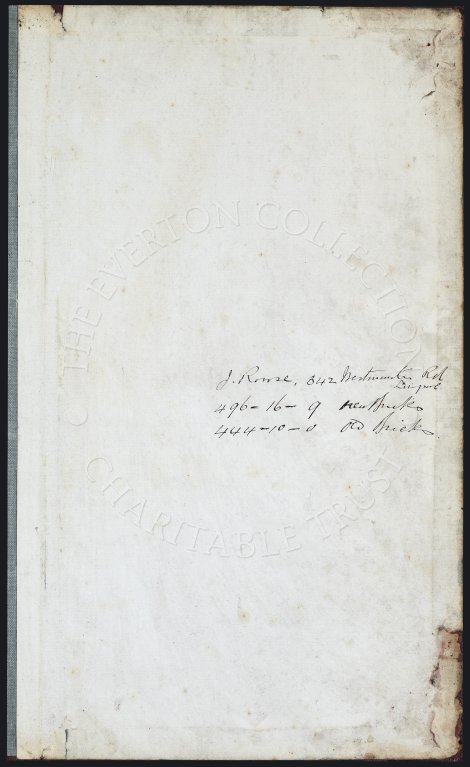 THE EVERTON COLLECTION
CHARITABLE TRUST
J. Rowse, 342 Westminster Rd
Liverpool
496-16-9 new Bricks
444-10-0 Old Bricks.